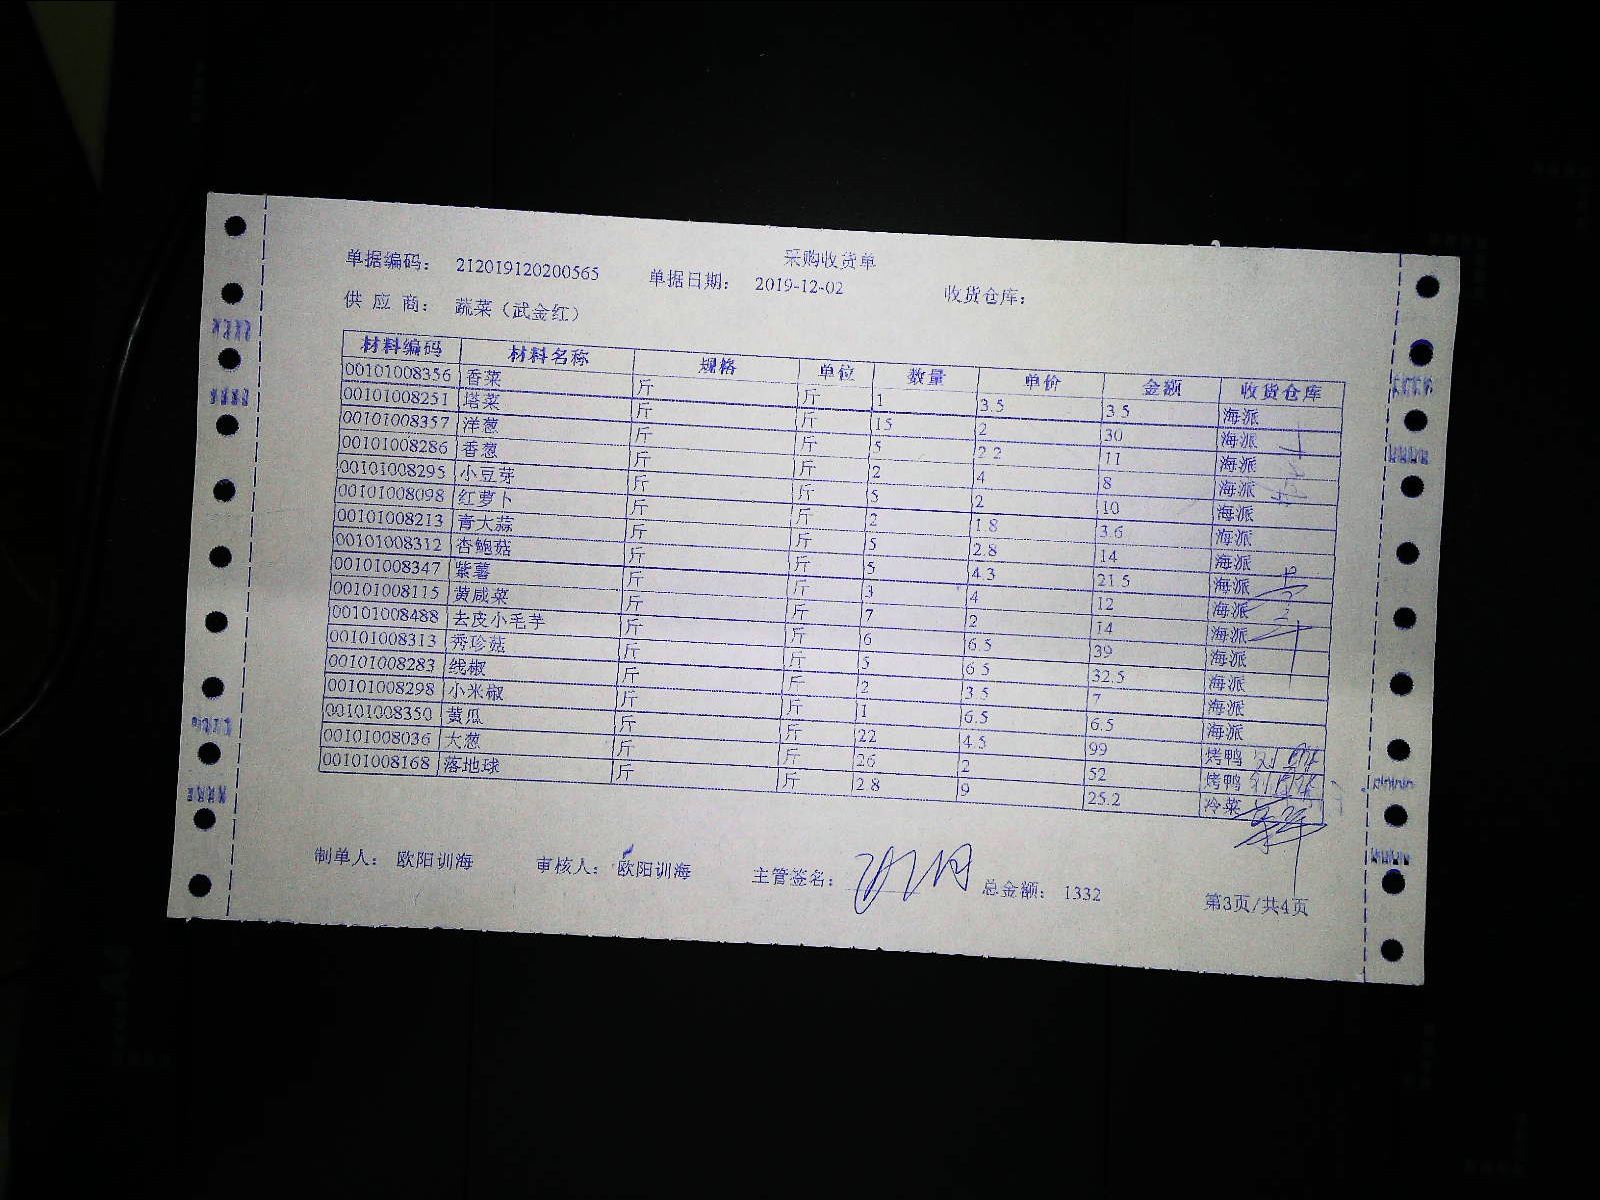 采购收货单
单据编码： 212019120200565 单据日期： 2019-12-02 收货仓库：
供 应 商： 蔬菜（武金红）
材料编码 材料名称 规格 单位 数量 单价 金额 收货仓库
00101008356 香菜 斤 斤 1 3.5 3.5 海派
00101008251 塔菜 斤 斤 15 2 30 海派
00101008357 洋葱 斤 斤 5 2.2 11 海派
00101008286 香葱 斤 斤 2 4 8 海派
00101008295 小豆芽 斤 斤 5 2 10 海派
00101008098 红萝卜 斤 斤 2 1.8 3.6 海派
00101008213 青大蒜 斤 斤 5 2.8 14 海派
00101008312 杏鲍菇 斤 斤 5 4.3 21.5 海派
00101008347 紫薯 斤 斤 3 4 12 海派
00101008115 黄咸菜 斤 斤 7 2 14 海派
00101008488 去皮小毛芋 斤 斤 6 6.5 39 海派
00101008313 秀珍菇 斤 斤 5 6.5 32.5 海派
00101008283 线椒 斤 斤 2 3.5 7 海派
00101008298 小米椒 斤 斤 1 6.5 6.5 海派
00101008350 黄瓜 斤 斤 22 4.5 99 烤鸭
00101008036 大葱 斤 斤 26 2 52 烤鸭
00101008168 落地球 斤 斤 2.8 9 25.2 冷菜
制单人： 欧阳训海 审核人： 欧阳训海 主管签名： 总金额： 1332
第3页/共4页